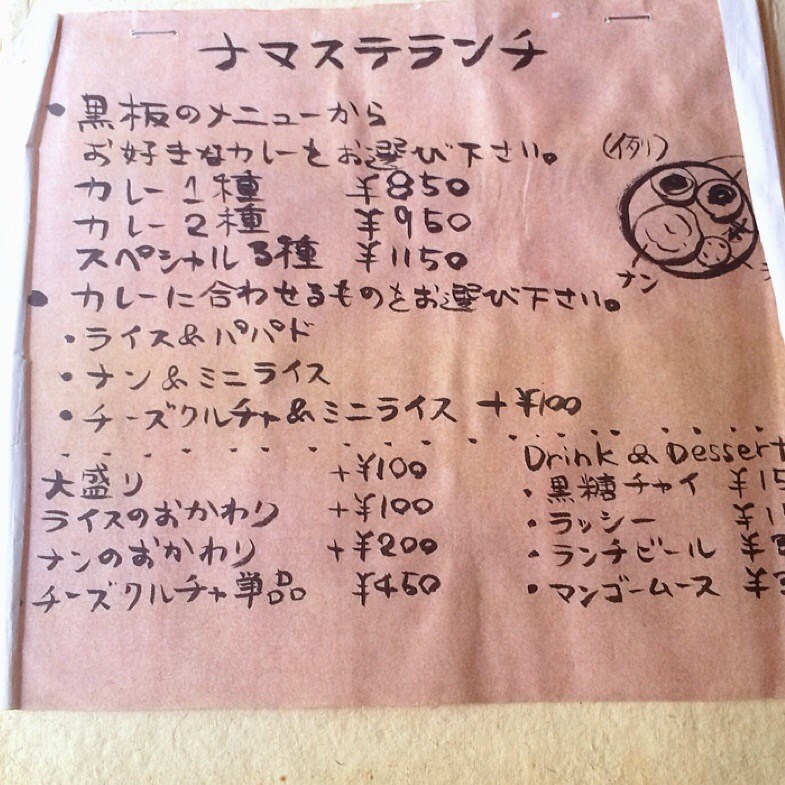 ナマステランチ
・黒板のメニューから
お好きなカレーをお選び下さい。
カレー1種 ¥850
カレー2種 ¥950
スペシャル3種 ¥1150
(例)
ナン
・カレーに合わせるものをお選び下さい。
・ライス&パパド
・ナン&ミニライス
・チーズクルチャ&ミニライス +¥100
大盛り +¥100
ライスのおかわり +¥100
ナンのおかわり +¥200
チーズクルチャ単品 ¥450
Drink & Dessert
・黒糖チャイ
・ラッシー
・ランチビール
・マンゴームース